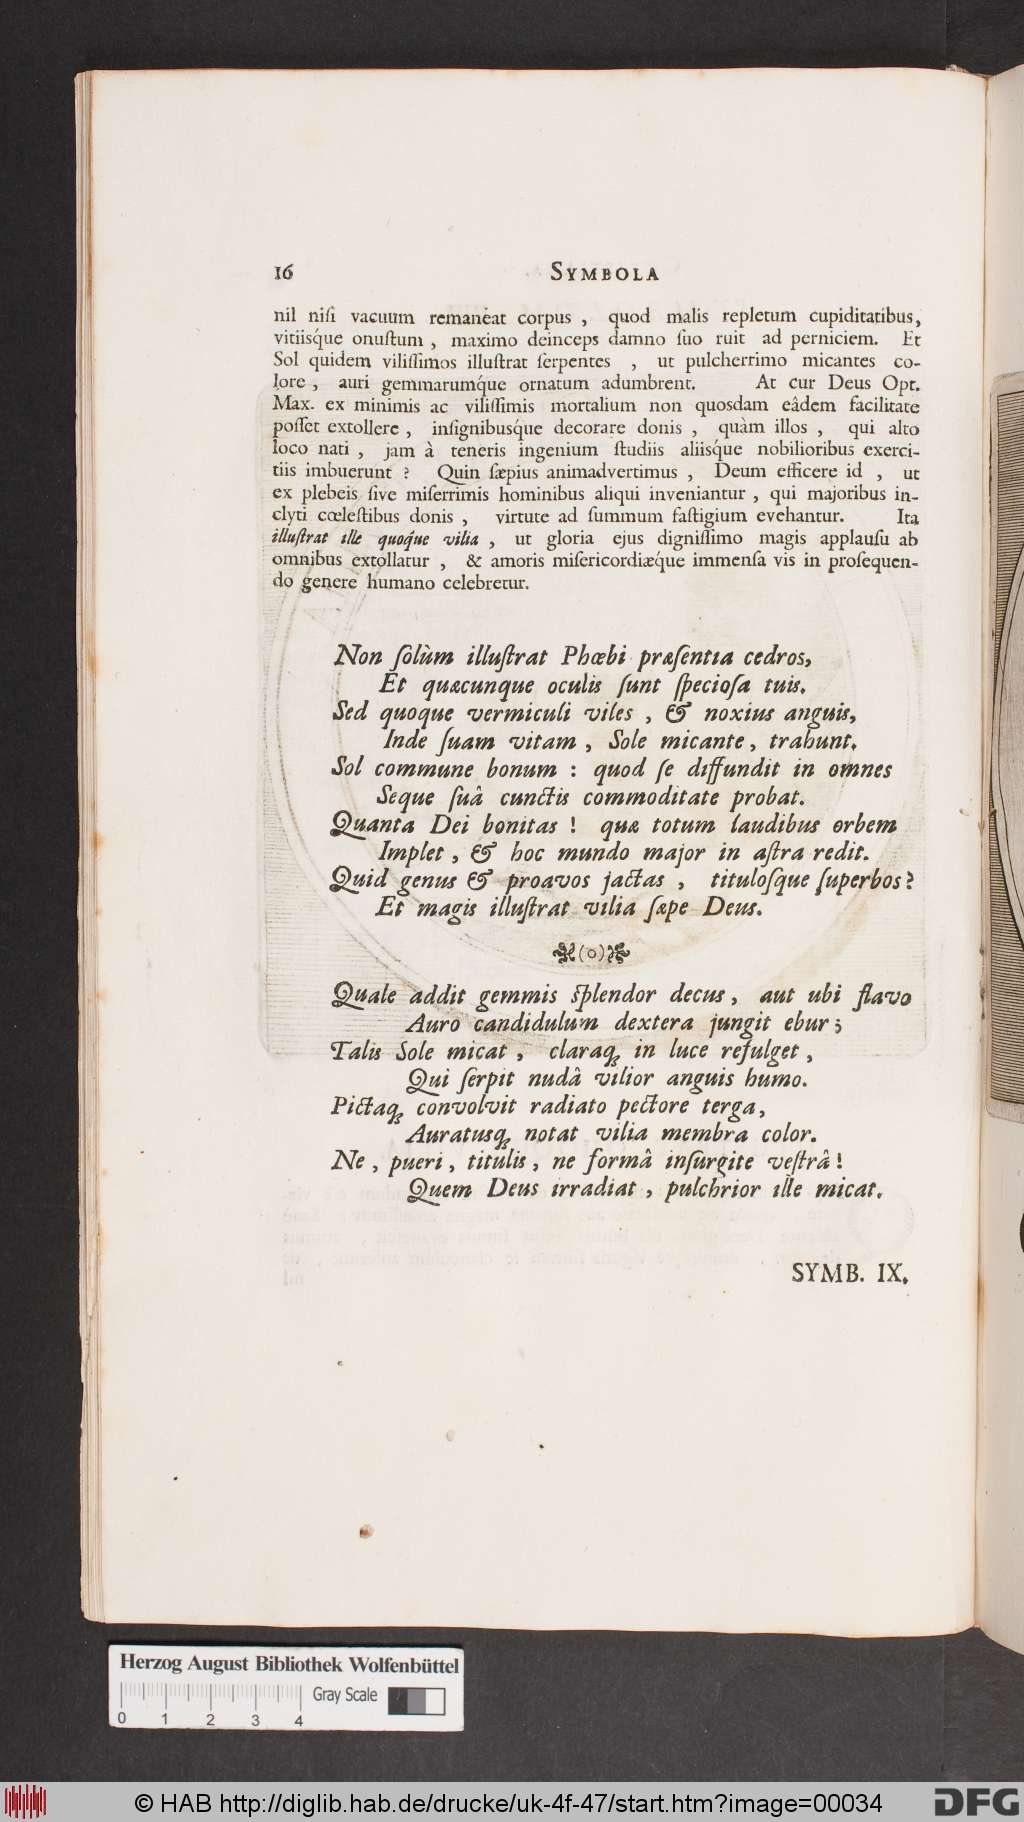 16 SYMBOLA
nil niſi vacuum remaneat corpus , quod malis repletum cupiditatibus,
vitiisq́ue onuſtum , maximo deinceps damno ſuo ruit ad perniciem. Et
Sol quidem viliſſimos illuſtrat ſerpentes , ut pulcherrimo micantes co-
lore , auri gemmarumq́ue ornatum adumbrent. At cur Deus Opt.
Max. ex minimis ac viliſſimis mortalium non quosdam eâdem facilitate
poſſet extollere , inſignibusq́ue decorare donis , quàm illos , qui alto
loco nati , jam à teneris ingenium ſtudiis aliisq́ue nobilioribus exerci-
tiis imbuerunt ? Quin ſæpius animadvertimus , Deum efficere id , ut
ex plebeis ſive miſerrimis hominibus aliqui inveniantur , qui majoribus in-
clyti cœleſtibus donis , virtute ad ſummum faſtigium evehantur. Ita
illuſtrat ille quoq́ue vilia , ut gloria ejus digniſſimo magis applauſu ab
omnibus extollatur , & amoris miſericordiæq́ue immenſa vis in proſequen-
do genere humano celebretur.
Non ſolùm illuſtrat Phœbi præſentia cedros,
Et quæcunque oculis ſunt ſpecioſa tuis.
Sed quoque vermiculi viles , & noxius anguis,
Inde ſuam vitam , Sole micante, trahunt.
Sol commune bonum : quod ſe diffundit in omnes
Seque ſuâ cunctis commoditate probat.
Quanta Dei bonitas ! quæ totum laudibus orbem
Implet , & hoc mundo major in aſtra redit.
Quid genus & proavos jactas , tituloſque ſuperbos?
Et magis illuſtrat vilia ſæpe Deus.
(o)
Quale addit gemmis ſplendor decus, aut ubi flavo
Auro candidulum dextera jungit ebur;
Talis Sole micat , claraq́; in luce refulget ,
Qui ſerpit nudâ vilior anguis humo.
Pictaq́; convolvit radiato pectore terga,
Auratusq́; notat vilia membra color.
Ne , pueri , titulis , ne formâ inſurgite veſtrâ!
Quem Deus irradiat , pulchrior ille micat.
SYMB. IX.
Herzog August Bibliothek Wolfenbüttel
Gray Scale
0 1 2 3 4
© HAB http://diglib.hab.de/drucke/uk-4f-47/start.htm?image=00034
DFG